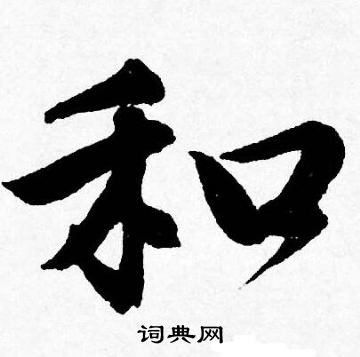 和
词典网